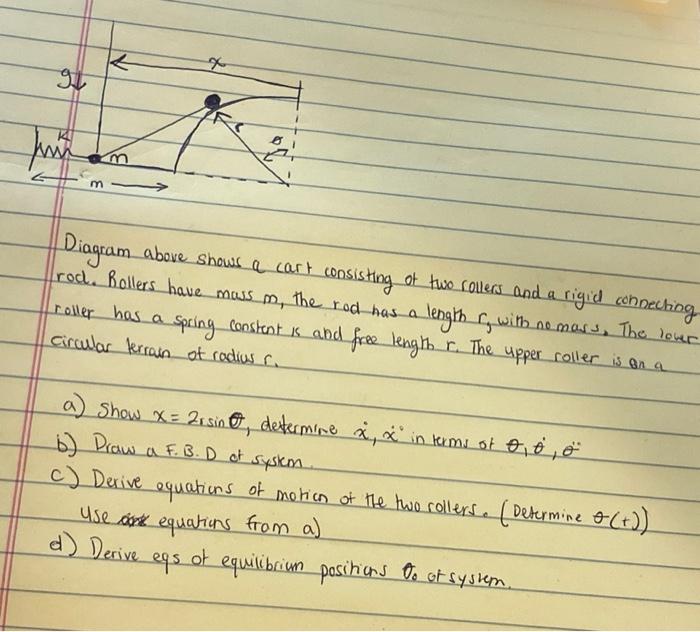 x
g↓
K
r
θ
m
m
Diagram above shows a cart consisting of two rollers and a rigid connecting
rod. Rollers have mass m, the rod has a length r, with no mass. The lower
roller has a spring constant k and free length r. The upper roller is on a
circular terrain of radius r.
a) Show x = 2rsinθ, determine ẋ, ẍ in terms of θ, θ̇, θ̈
b) Draw a F.B.D of system.
c) Derive equations of motion of the two rollers. (Determine θ(t))
use equations from a)
d) Derive eqs of equilibrium positions θ₀ of system.